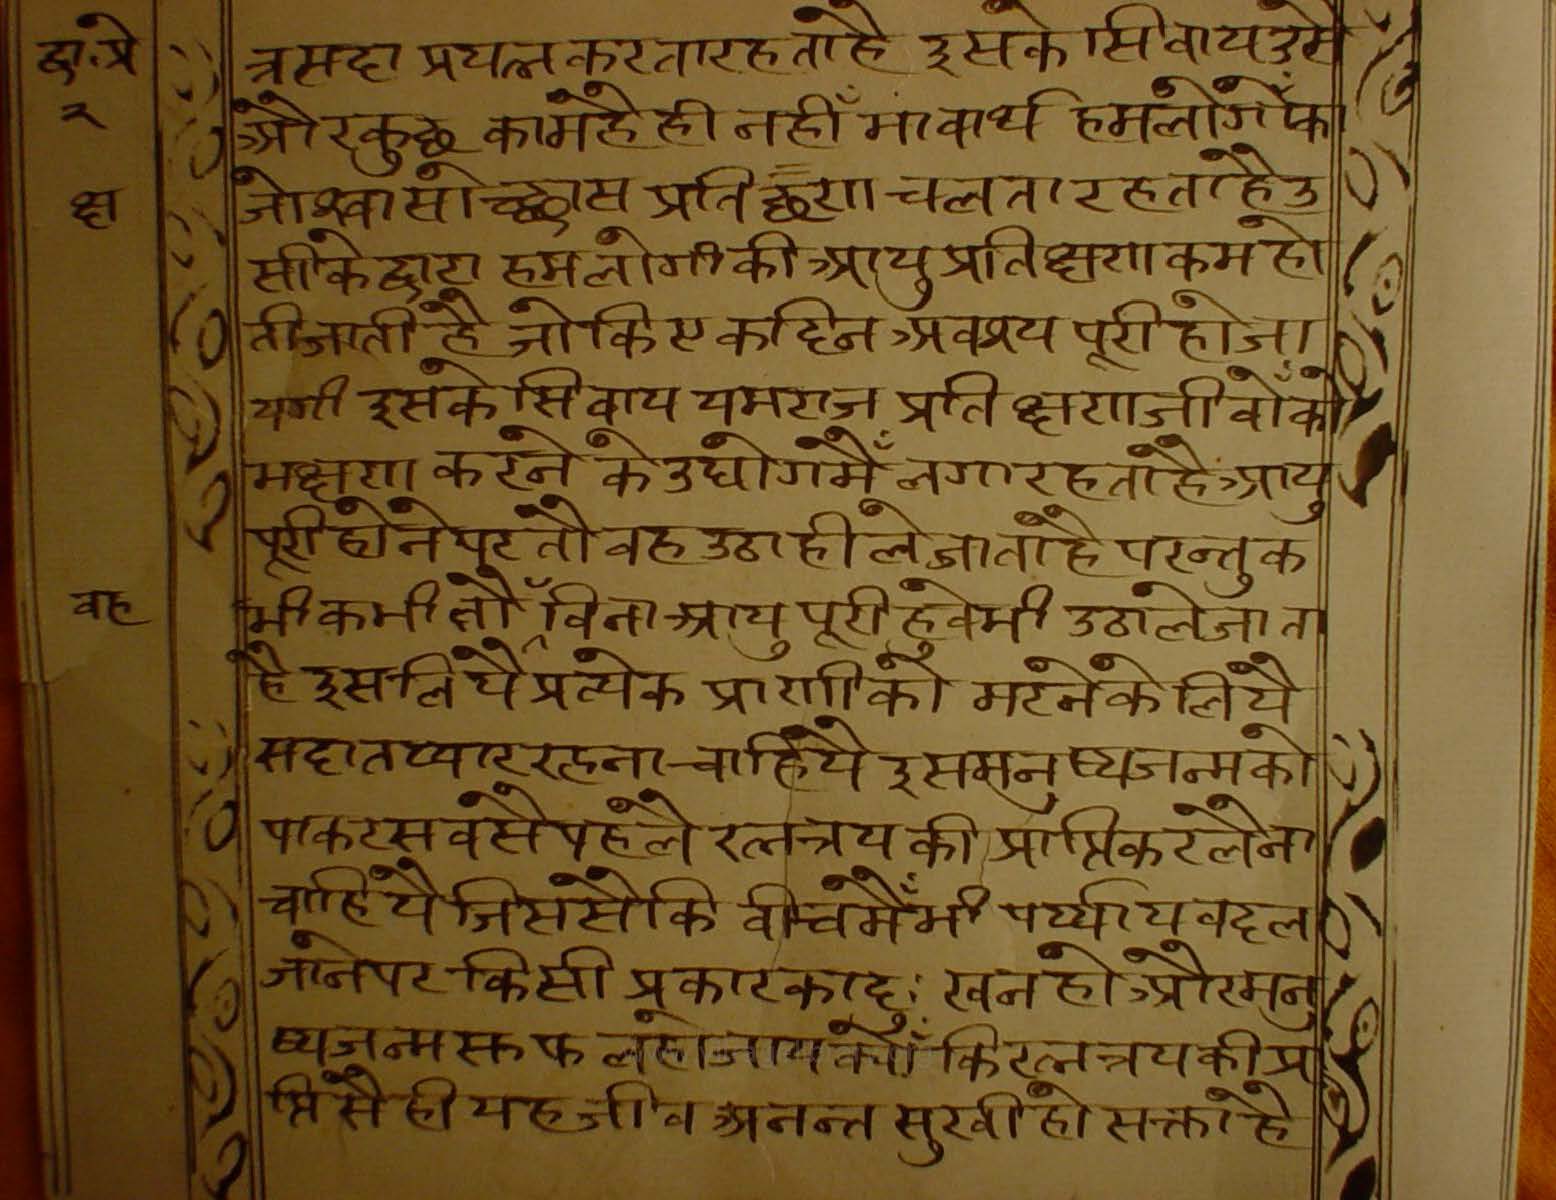 द्वा.प्रे
२
त्र सदा प्रयत्न करता रहता है इसके सिवाय उसे
और कुछ काम है ही नहीँ भावार्थ हम लोगोँ का
क्ष
जो श्वासोच्छ्वास प्रति छण चलता रहता है उ
सी के द्वारा हम लोगों की आयु प्रति क्षण कम हो
ती जाती है जो कि एक दिन अवश्य पूरी हो जा
यगी इसके सिवाय यमराज प्रति क्षण जीवोँ को
भक्षण करने के उद्योग मैँ लगा रहता है आयु
पूरी होने पर तो वह उठा ही ले जाता है परन्तु क
वह
भी कभी तौँ विना आयु पूरी हुवे भी उठा ले जाता
है इसलिये प्रत्येक प्राणी को मरने के लिये
सदा तय्यार रहना चाहिये इस मनुष्य जन्म को
पाकर सवसै पहले रत्नत्रय की प्राप्ति कर लैना
चाहिये जिससै कि वीच मैँ भी पर्य्याय वदल
जाने पर किसी प्रकार का दुःख न हो और मनु
ष्य जन्म सफल हो जाय क्योँ कि रत्नत्रय की प्रा
प्ति सै ही यह जीव अनन्त सुखी हो सक्ता है